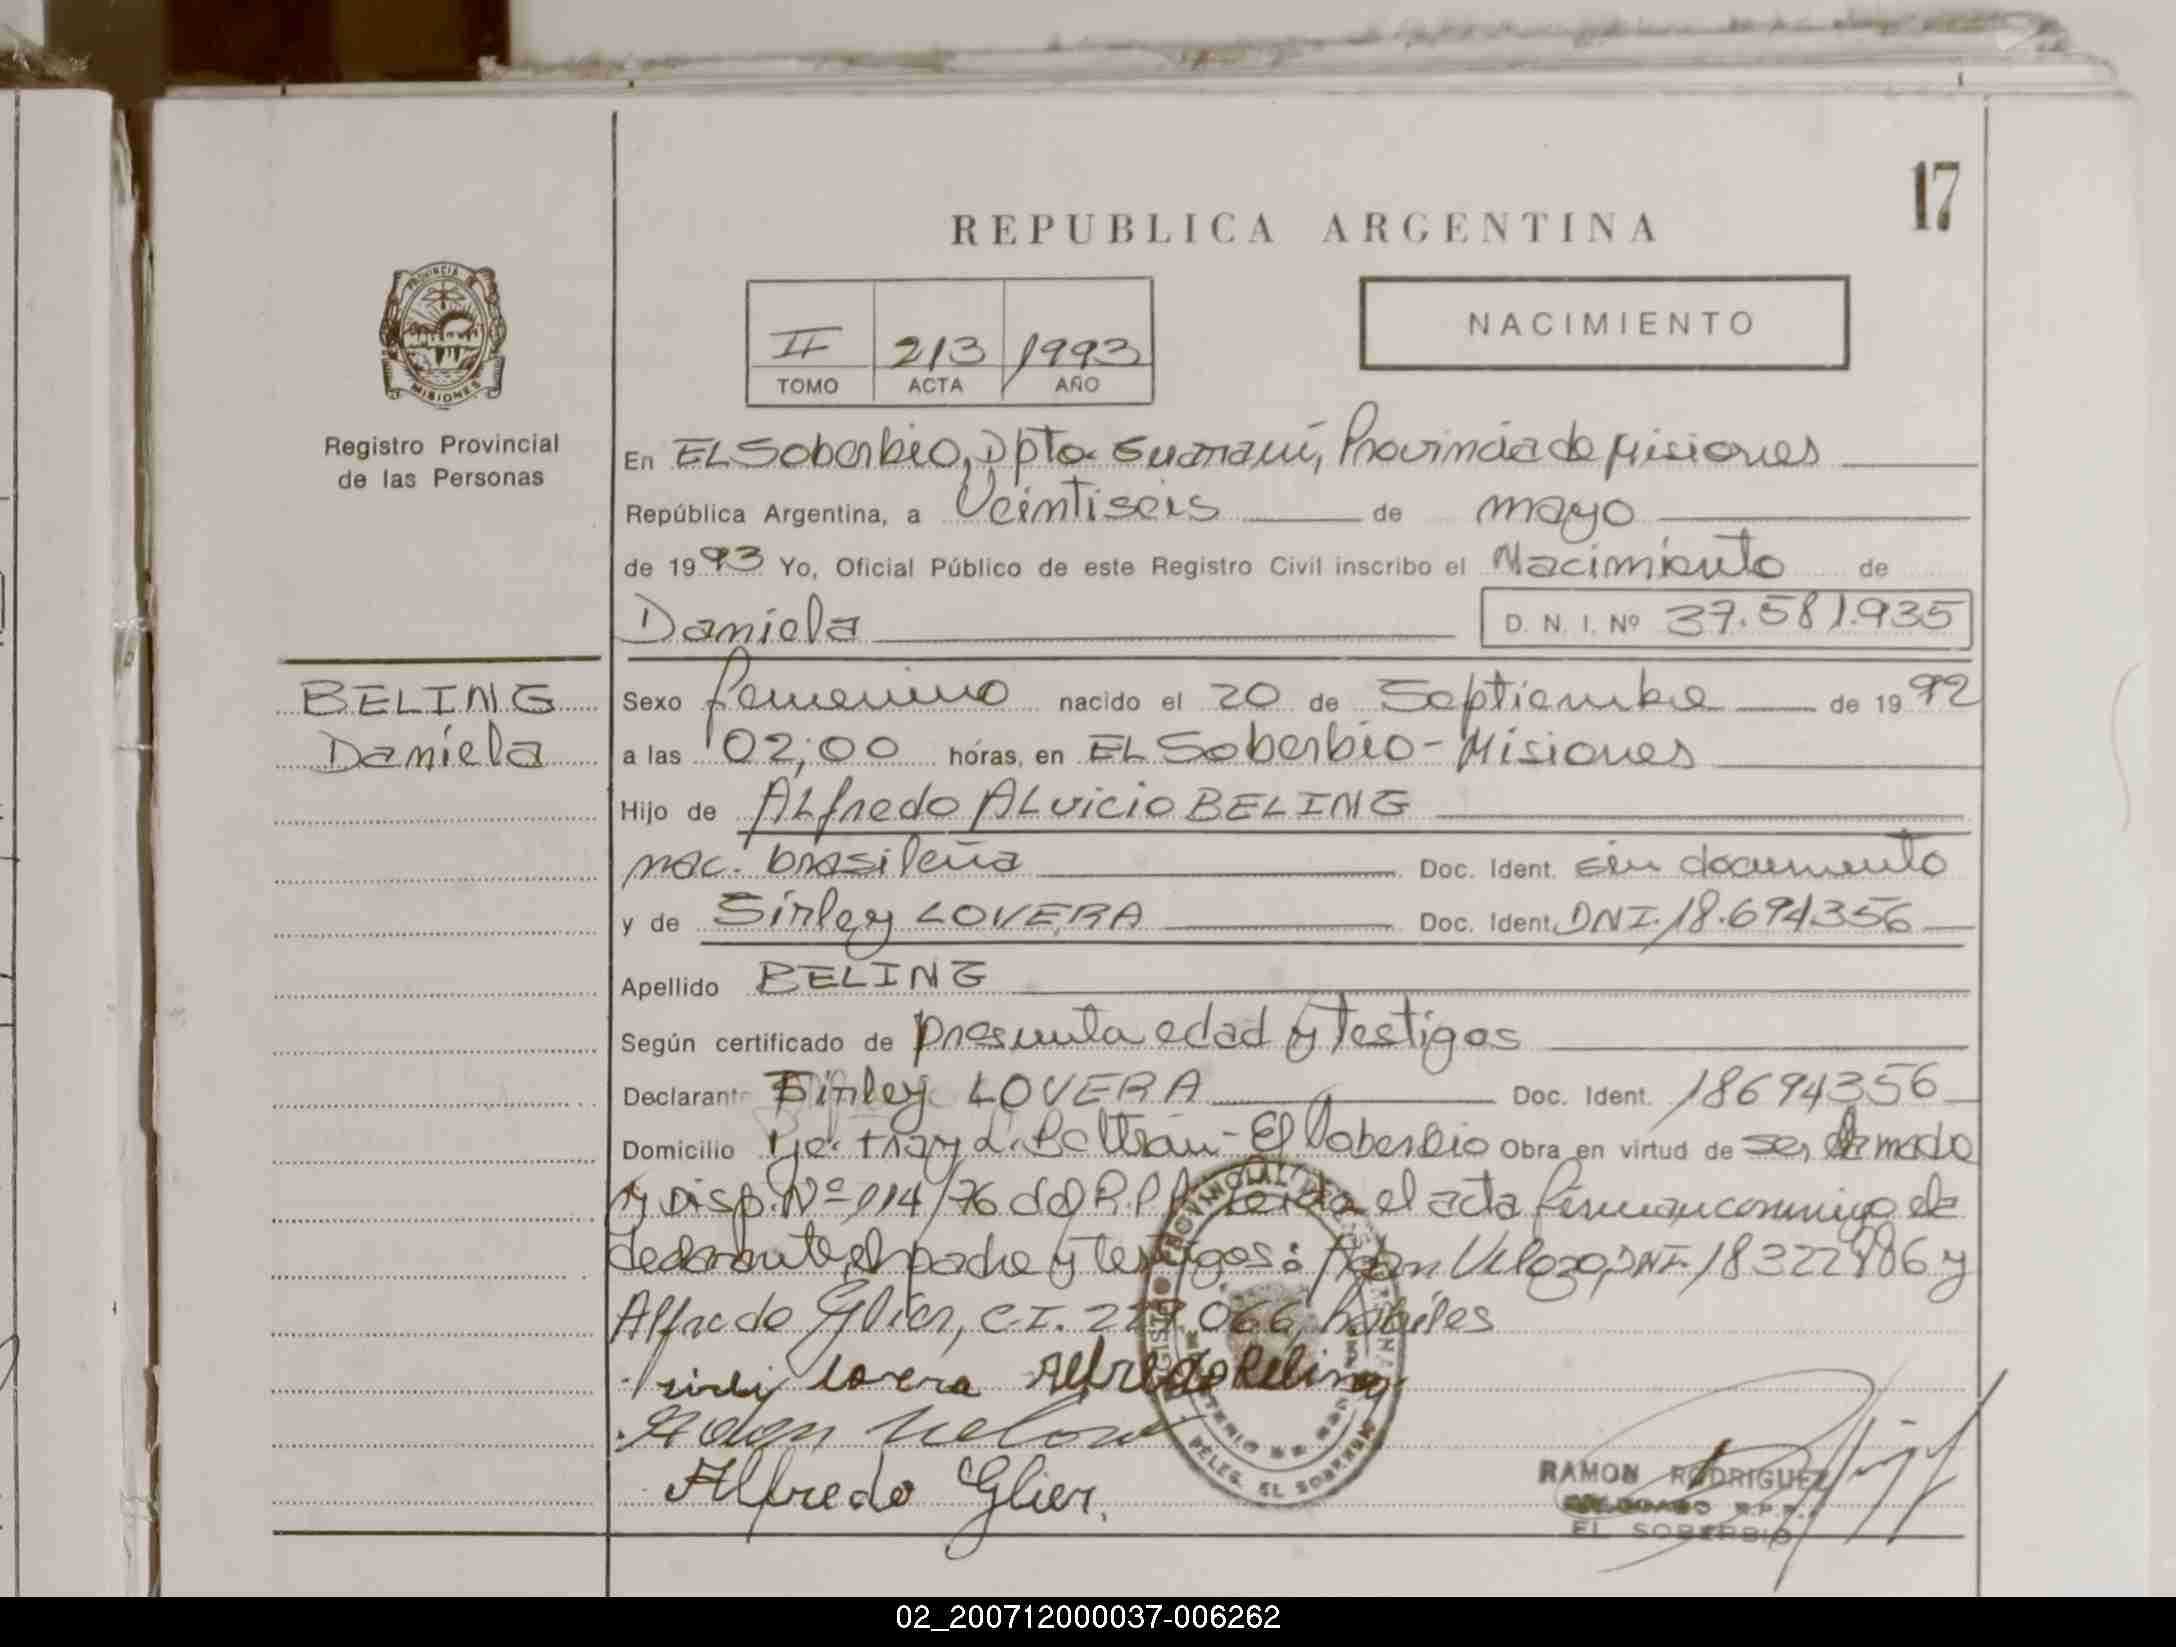 17
REPUBLICA ARGENTINA
PROVINCIA
MISIONES
Registro Provincial
de las Personas
II 213 1993
TOMO ACTA AÑO
NACIMIENTO
En EL Soberbio, Dpto Guaraní, Provincia de Misiones
República Argentina, a Veintiseis de mayo
de 1993 Yo, Oficial Público de este Registro Civil inscribo el Nacimiento de
Daniela D. N. I. Nº 37.581.935
BELING
Daniela
Sexo femenino nacido el 20 de Septiembre de 1992
a las 02,00 horas, en EL Soberbio - Misiones
Hijo de ALfredo ALvicio BELING
nac. brasileña Doc. Ident. sin documento
y de Sirley LOVERA Doc. Ident. DNI. 18.694356
Apellido BELING
Según certificado de presunta edad y Testigos
Declarante Sirley LOVERA Doc. Ident. 18694356
Domicilio Fray L. Beltrán - El Soberbio Obra en virtud de ser la madre
y Disp. Nº 114/76 del R.P.P. Leida el acta firman conmigo la
declarante, el padre y testigos: Adan Velozo, DNI. 18322886 y
Alfredo Glier, C.I. 229.066, hábiles
sirli lovera Alfredo Beling
Adan Veloso
Alfredo Glier.
RAMON RODRIGUEZ
DELEGADO R.P.P.
EL SOBERBIO
02_200712000037-006262